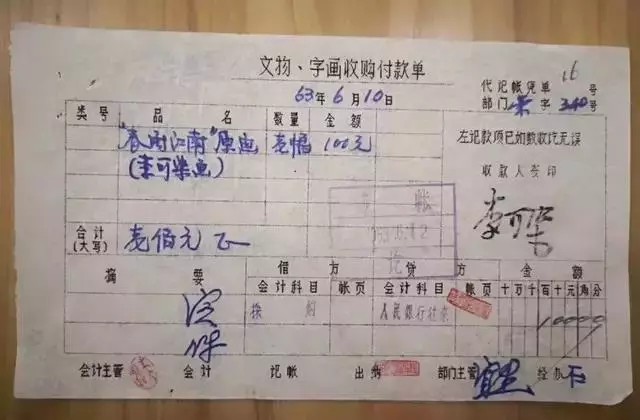 文物、字画收购付款单
63年6月10日
代记帐凭单 号
部门 荣 字 340 号
类号 品名 数量 金额
"春雨江南"原画 壹幅 100元
(李可染画)
左记款项已如数收讫无误
收款人签印
李可染
合计
(大写) 壹佰元正
摘要 借方 贷方 金额
会计科目 帐页 会计科目 帐页 十万千百十元角分
採购 人民银行往来 10000
会计主管 会计 记帐 出纳 部门主管 经办